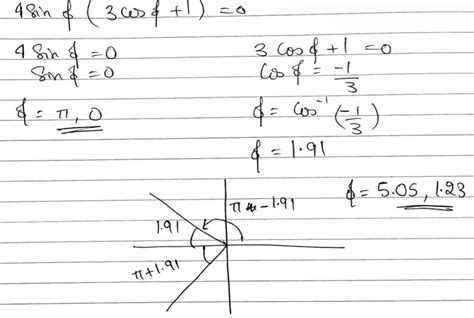 4 Sin ϕ ( 3 cos ϕ + 1 ) = 0
4 Sin ϕ = 0
Sin ϕ = 0
ϕ = π, 0
3 cos ϕ + 1 = 0
Cos ϕ = -1/3
ϕ = cos⁻¹ (-1/3)
ϕ = 1.91
ϕ = 5.05, 1.23
π - 1.91
1.91
π + 1.91